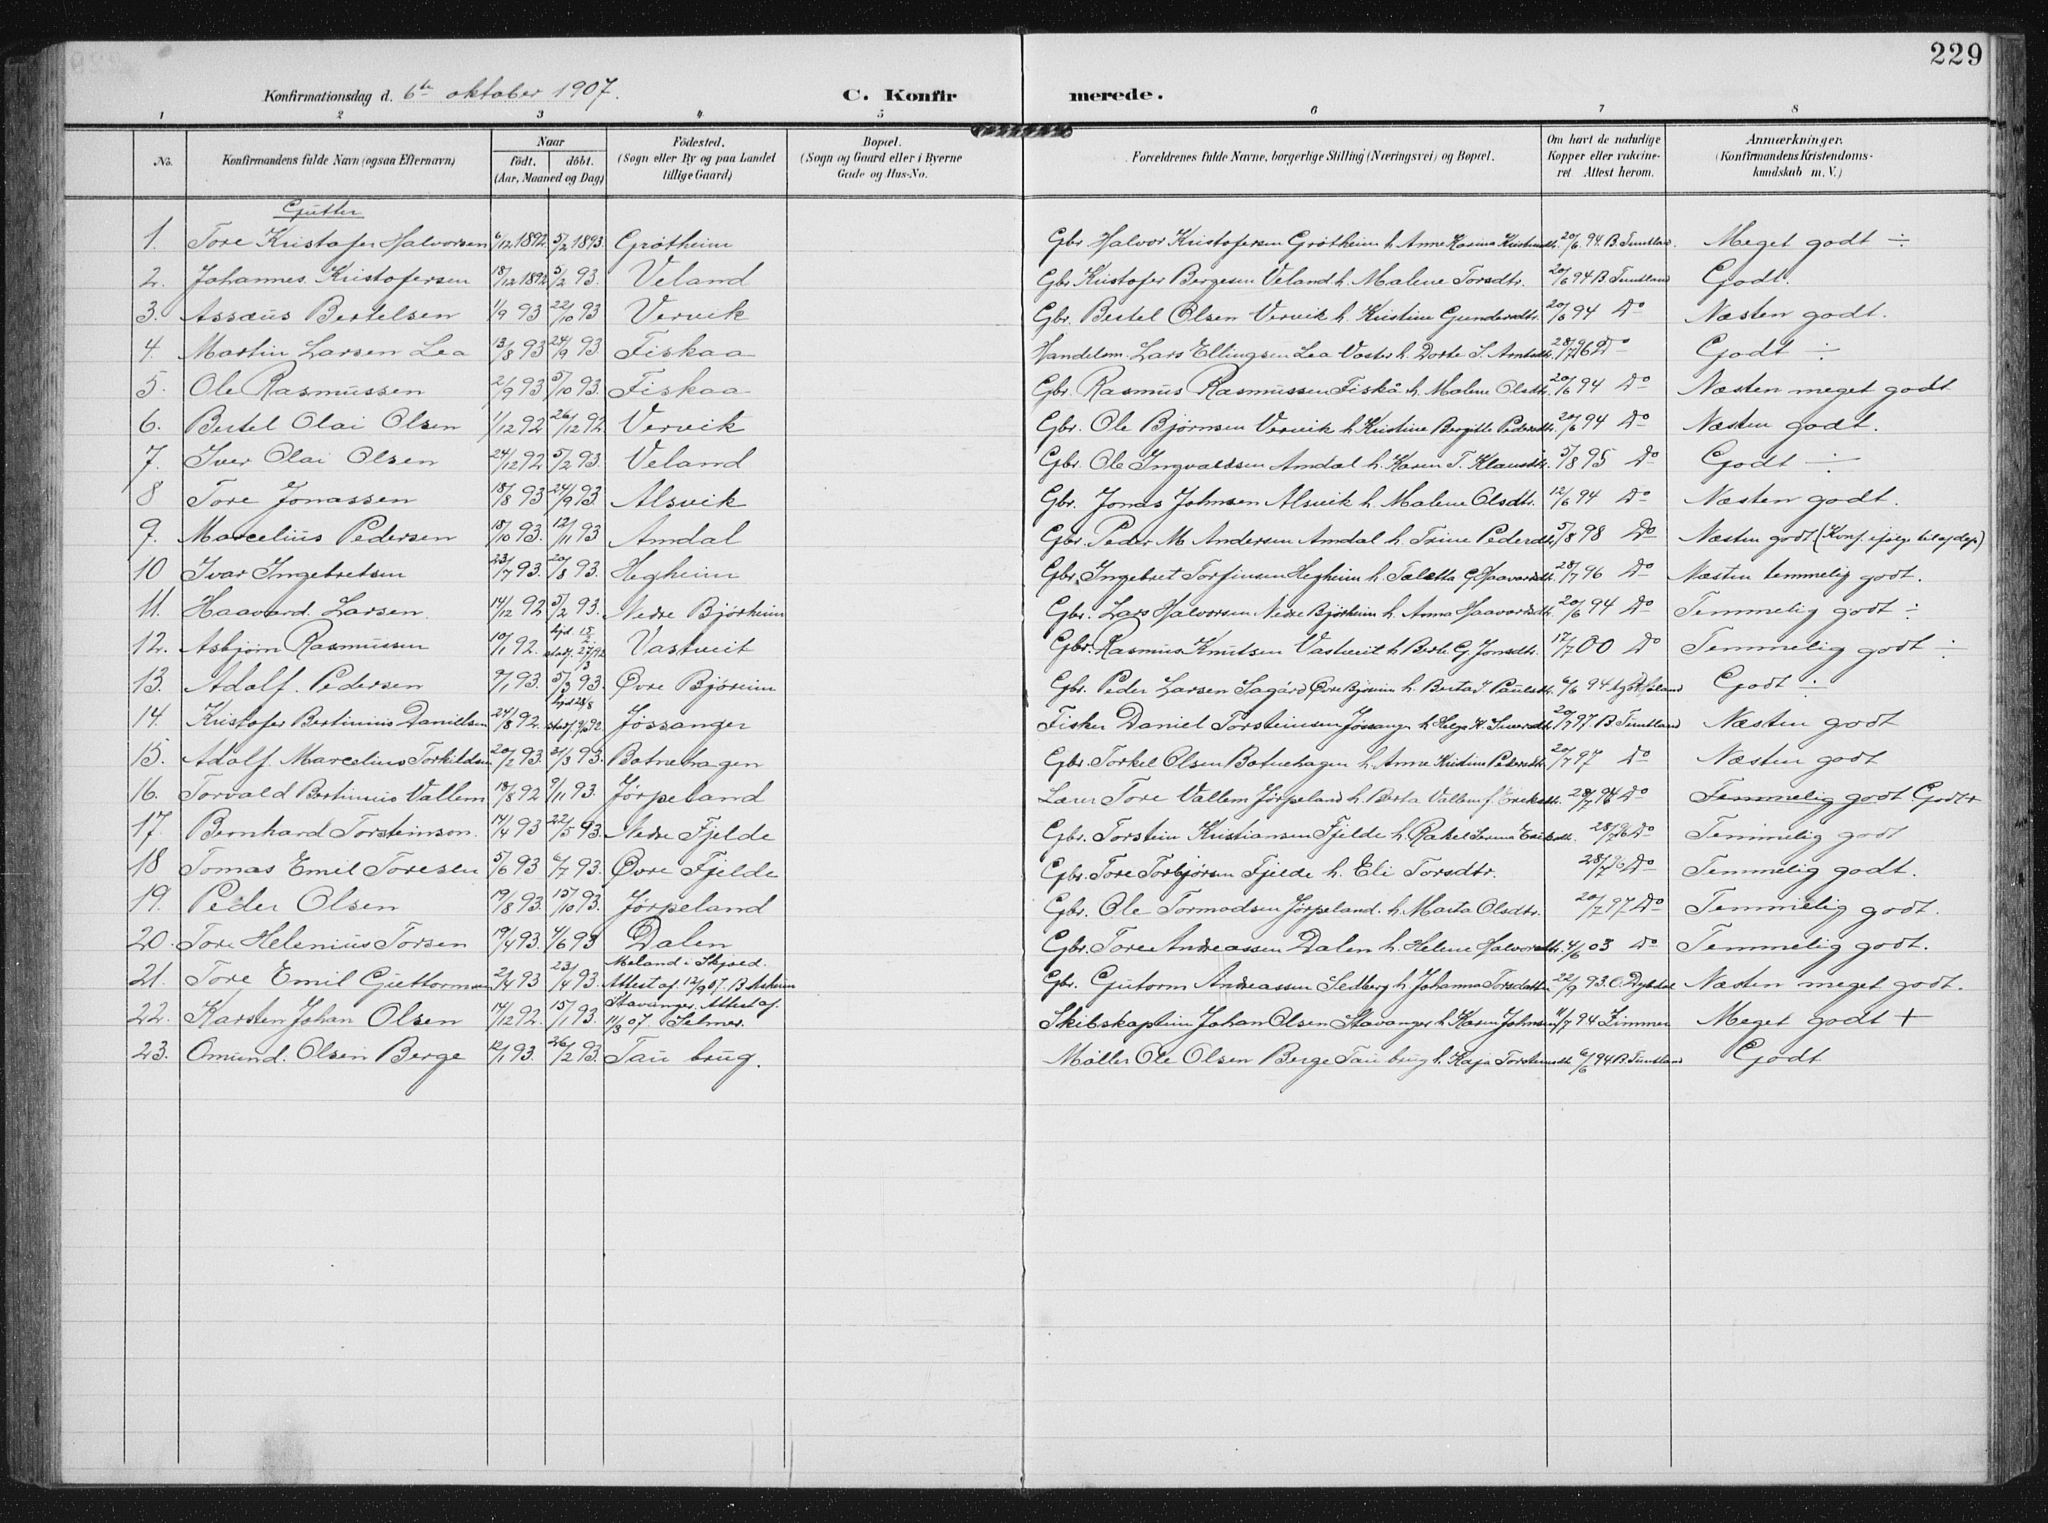 229
Konfirmationsdag d. 6te oktober 1907. C. Konfirmerede.
1 2 3 4 5 6 7 8
No. Konfirmandens fulde Navn (ogsaa Efternavn) Naar födt. döbt. (Aar, Maaned og Dag) Födested. (Sogn eller By og paa Landet tillige Gaard) Bopæl. (Sogn og Gaard eller i Byerne Gade og Hus-No. Forældrenes fulde Navne, borgerlige Stilling (Næringsvei) og Bopæl. Om havt de naturlige Kopper eller vaccineret Attest herom. Anmærkninger. (Konfirmandens Kristendomskundskab m. V.)
Gutter
1. Tore Kristofer Halvorsen 6/12 1892. 5/2 1893. Grötheim Gbr. Halvor Kristofersen Grötheim h. Anne 20/6 94. B. Tuntland. Meget godt ÷
2. Johannes Kristofersen 18/12 1892 5/2 93. Veland Gbr. Kristofer Bergesen Veland h. Malene Torsdtr. 20/6 94 B. Tuntland Godt.
3. Assæus Bertelsen 1/9 93 22/10 93 Vervik Gbr. Bertel Olsen Vervik h. Kristine Gundersdtr. 20/6 94 Do Næsten godt.
4. Martin Larsen Lea 13/8 93 24/9 93 Fiskaa Handelsm. Lars Ellingsen Lea h. Dorte S. 28/7 96 Do Godt ÷
5. Ole Rasmussen 2/9 93 5/10 93. Fiskaa Gbr. Rasmus Rasmussen Fiskå h. Malene Olsdtr. 20/6 94 Do Næsten meget godt
6. Bertel Olai Olsen 1/12 92 26/12 92. Vervik Gbr. Ole Bjørnsen Vervik h. Kristine Bergitte Pedersdtr. 20/6 94 Do Næsten godt.
7. Iver Olai Olsen 24/12 92 5/2 93. Veland Gbr. Ole Ingvaldsen Amdal h. Karen T. Klausdtr. 5/8 95 Do Godt ÷
8 Tore Jonassen 18/8 93 24/9 93 Alsvik Gbr. Jonas Johnsen Alsvik h. Malene Olsdtr. 12/6 94 Do Næsten godt.
9. Marcelius Pedersen 18/10 93. 12/11 93 Amdal Gbr. Peder M Andersen Amdal h. Trine Pedersdtr. 5/8 98 Do Næsten godt (Konf.
10 Ivar Ingebretsen 23/7 93. 20/8 93. Hegheim Gbr. Ingebret Torfinsen Hegheim h. Taletta G Haavardsdtr. 28/7 96 Do Næsten temmelig godt.
11. Haavard Larsen. 14/12 92 5/2 93. Nedre Bjørheim Gbr. Lars Halvorsen Nedre Bjørheim h. Anna Haavardsdtr. 20/6 94 Do Temmelig godt ÷
12. Asbjørn Rasmussen 10/1 92. hjd. 15/2 stadf. 27/3 92 Vastveit Gbr. Rasmus Knutsen Vastveit h Berte G. Jonsdtr. 17/7 00 Do Temmelig godt ÷
13. Adolf. Pedersen 7/1 93. 5/3 93. Øvre Björeim Gbr. Peder Larsen Sagård Øvre Björeim h. Berta I. Paulsdtr. 6/6 94 Godt ÷
14. Kristofer Bertinius Danielsen 24/8 92. hjd 28/8 stadf. 92 Jössanger Fisker Daniel Torsteinsen Jøssang h Helga K. Sivertsdtr. 20/7 97. B Tuntland Næsten godt
15. Adolf Marcelius Torkildsen 20/2 93. 31/3 93. Botnehagen Gbr. Torkel Olsen Botnehagen h. Anne Kristine Pedersdtr. 20/7 97 Do Næsten godt
16. Torvald Bertinius Vallem 18/8 92 9/11 93. Jørpeland Lærer Tore Vallem Jørpeland h. Berta Vallem f. Eriksdtr. 28/7 96 Do Temmelig godt Godt
17. Bernhard Torsteinson. 14/4 93 22/5 93. Nedre Fjelde Gbr. Torstein Kristiansen Fjelde h. Rakel Serina Eriksdtr. 28/7 96 Do Temmelig godt
18 Tomas Emil Toresen 5/6 93 6/7 93. Øvre Fjelde Gbr. Tore Torbjørsen Fjelde h. Eli Torsdtr. 28/7 96 Do Temmelig godt.
19. Peder Olsen 19/8 93. 15/10 93. Jørpeland Gbr. Ole Tormodsen Jørpeland. h. Marta Olsdtr. 20/7 97 Do Temmelig godt.
20. Tore Helenius Torsen 19/4 93. 4/6 93 Dalen Gbr. Tore Andreassen Dalen h. Helene Halvorsdtr. 4/6 03 Do Temmelig godt.
21. Tore Emil Guttormsen 2/4 93 23/4 93. Meland i Skjold. Attest af 12/9 07. B. Askeim Gbr. Gutorm Andreassen Sedberg h Johanna Torsdatter 22/9 93. O. Næsten meget godt.
22. Karsten Johan Olsen 14/12 92. 15/1 93. Stavanger. Attest af 11/3 07. Selmer. Skibskaptein Johan Olsen Stavanger h Karen Johnsen 11/7 94 Zimmer Meget godt +
23. Omund Olsen Berge 12/1 93. 26/2 93. Tau brug. Møller Ole Olsen Berge Tau brug h. Kaja Torsteinsdtr. 6/6 94 B. Tuntland Godt